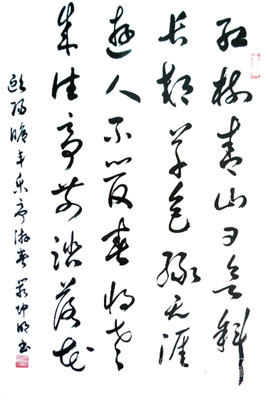 红树青山日欲斜
长郊草色绿无涯
遊人不管春将老
来往亭前踏落花
欧阳脩丰乐亭游春 书